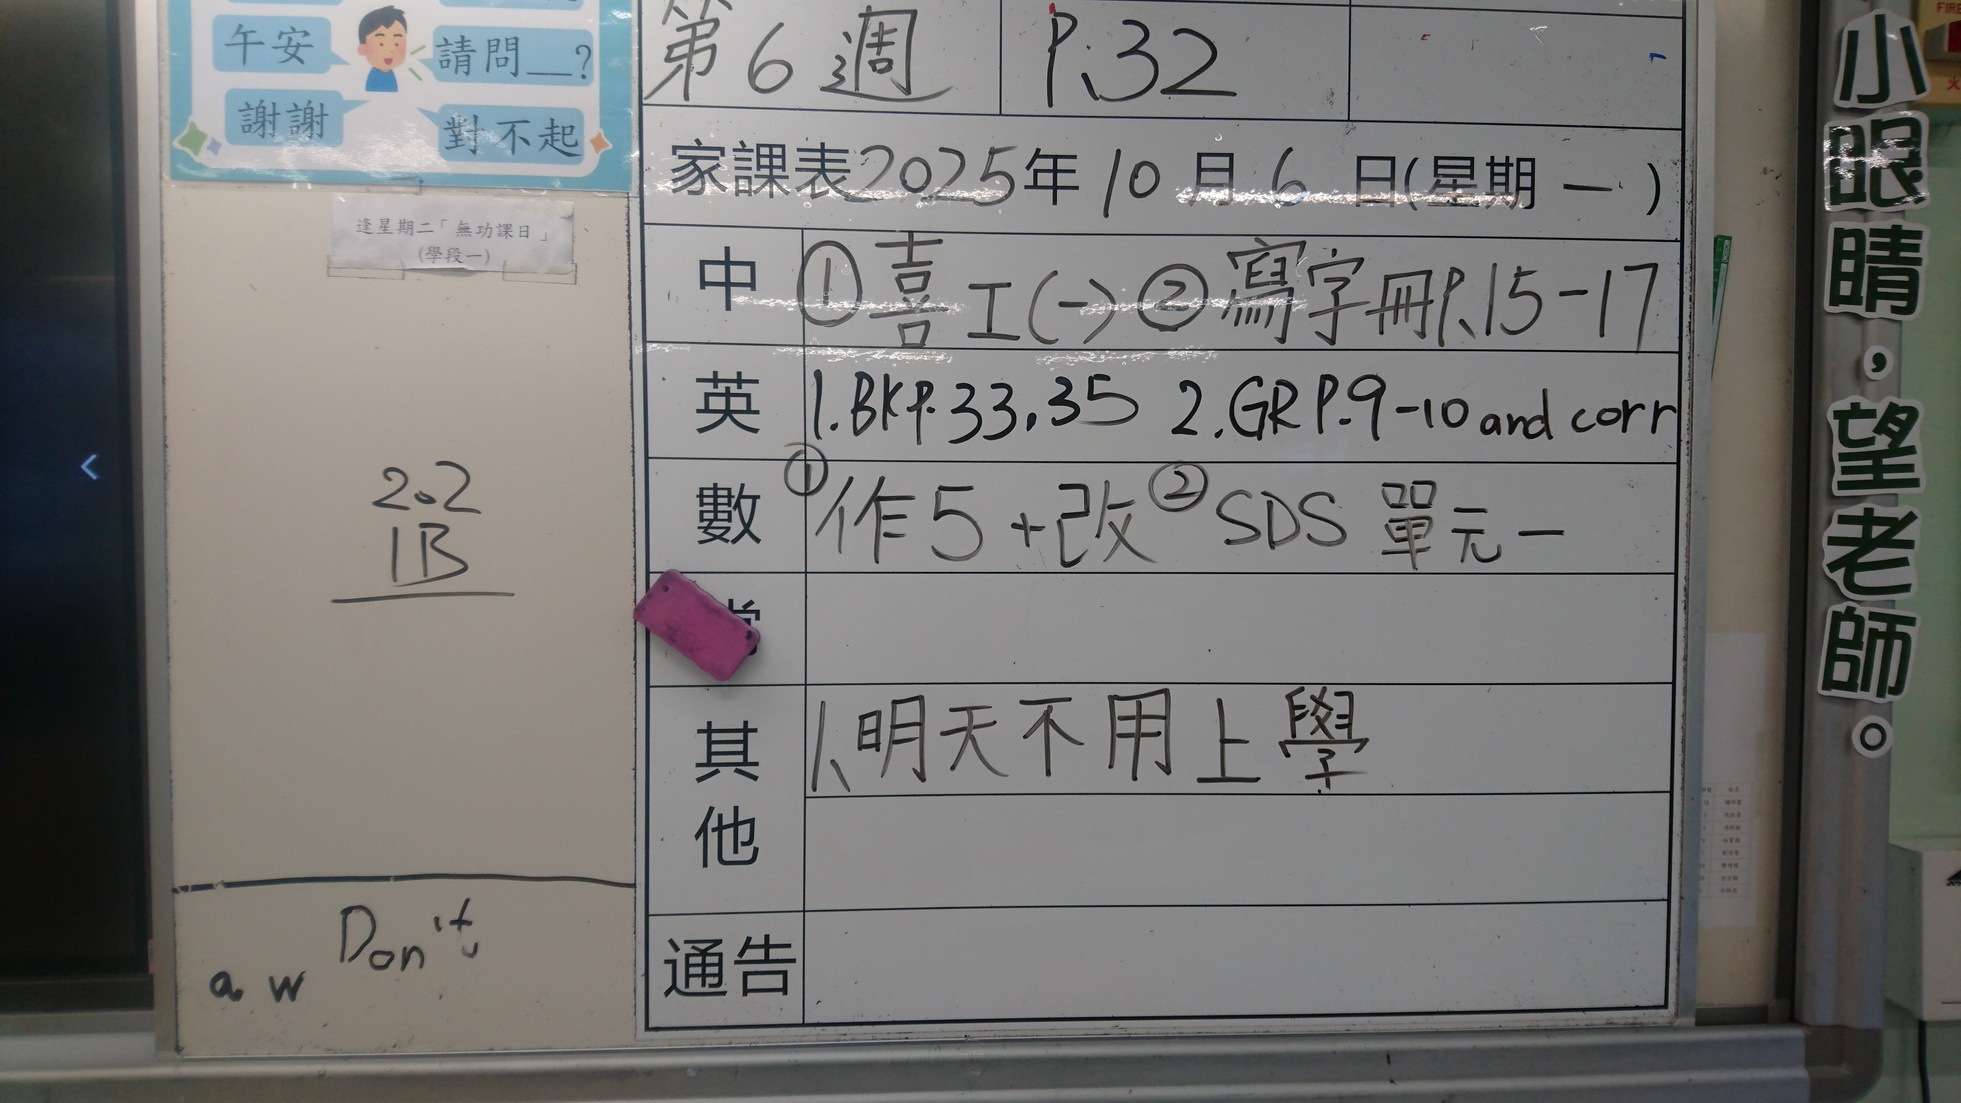 午安
請問__?
謝謝
對不起
逢星期二「無功課日」
(學段一)
202
1B
Don't
a w
第6週 P.32
家課表2025年10月6日(星期一)
中 ①喜工(一)②寫字冊P.15-17
英 1.BKP.33,35 2.GRP.9-10 and corr
數 ①作5+改②SDS 單元一
其他 1.明天不用上學
通告
小眼睛,望老師。